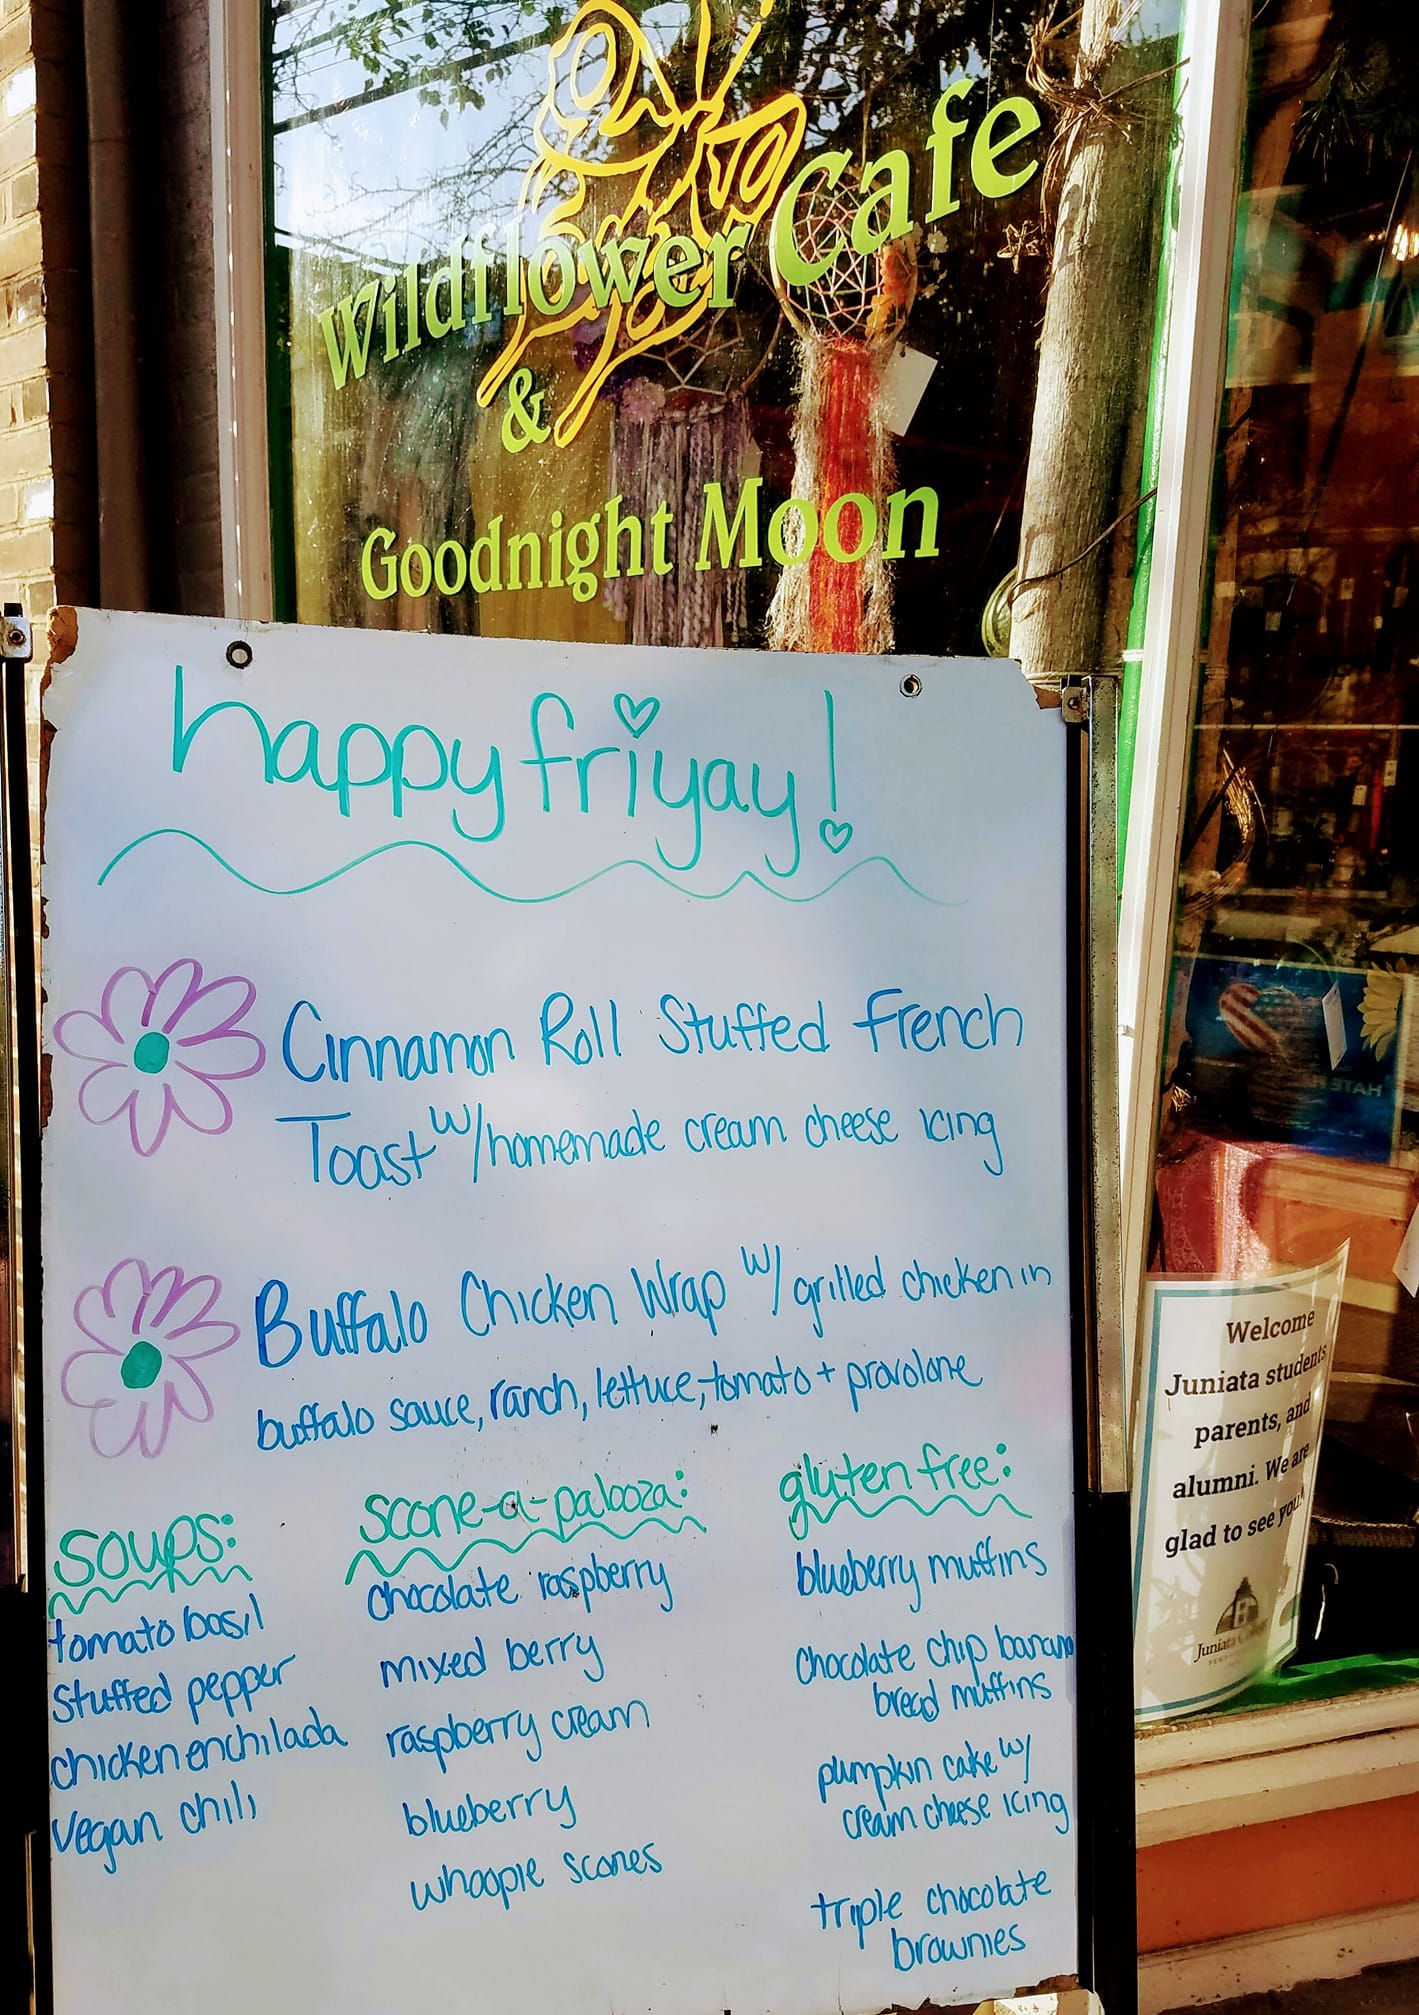 Wildflower Cafe
&
Goodnight Moon
happy friyay!
Cinnamon Roll Stuffed French
Toast w/homemade cream cheese icing
Buffalo Chicken Wrap w/ grilled chicken in
buffalo sauce, ranch, lettuce, tomato + provolone
soups:
tomato basil
stuffed pepper
chicken enchilada
vegan chili
scone-a-palooza:
chocolate raspberry
mixed berry
raspberry cream
blueberry
whoopie scones
gluten free:
blueberry muffins
chocolate chip banana
bread muffins
pumpkin cake w/
cream cheese icing
triple chocolate
brownies
Welcome
Juniata students,
parents, and
alumni. We are
glad to see you!
Juniata College